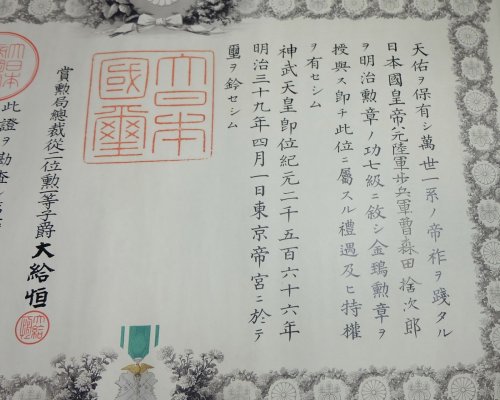 天佑ヲ保有シ萬世一系ノ帝祚ヲ踐タル
日本國皇帝ハ元陸軍步兵軍曹森田捨次郎
ヲ明治勲章ノ功七級ニ敘シ金鵄勲章ヲ
授與ス即チ此位ニ屬スル禮遇及ヒ特權
ヲ有セシム
神武天皇即位紀元二千五百六十六年
明治三十九年四月一日東京帝宮ニ於テ
璽ヲ鈐セシム
大日本國璽
賞勲局總裁從二位勲一等子爵大給恒
此證ヲ勘查シ